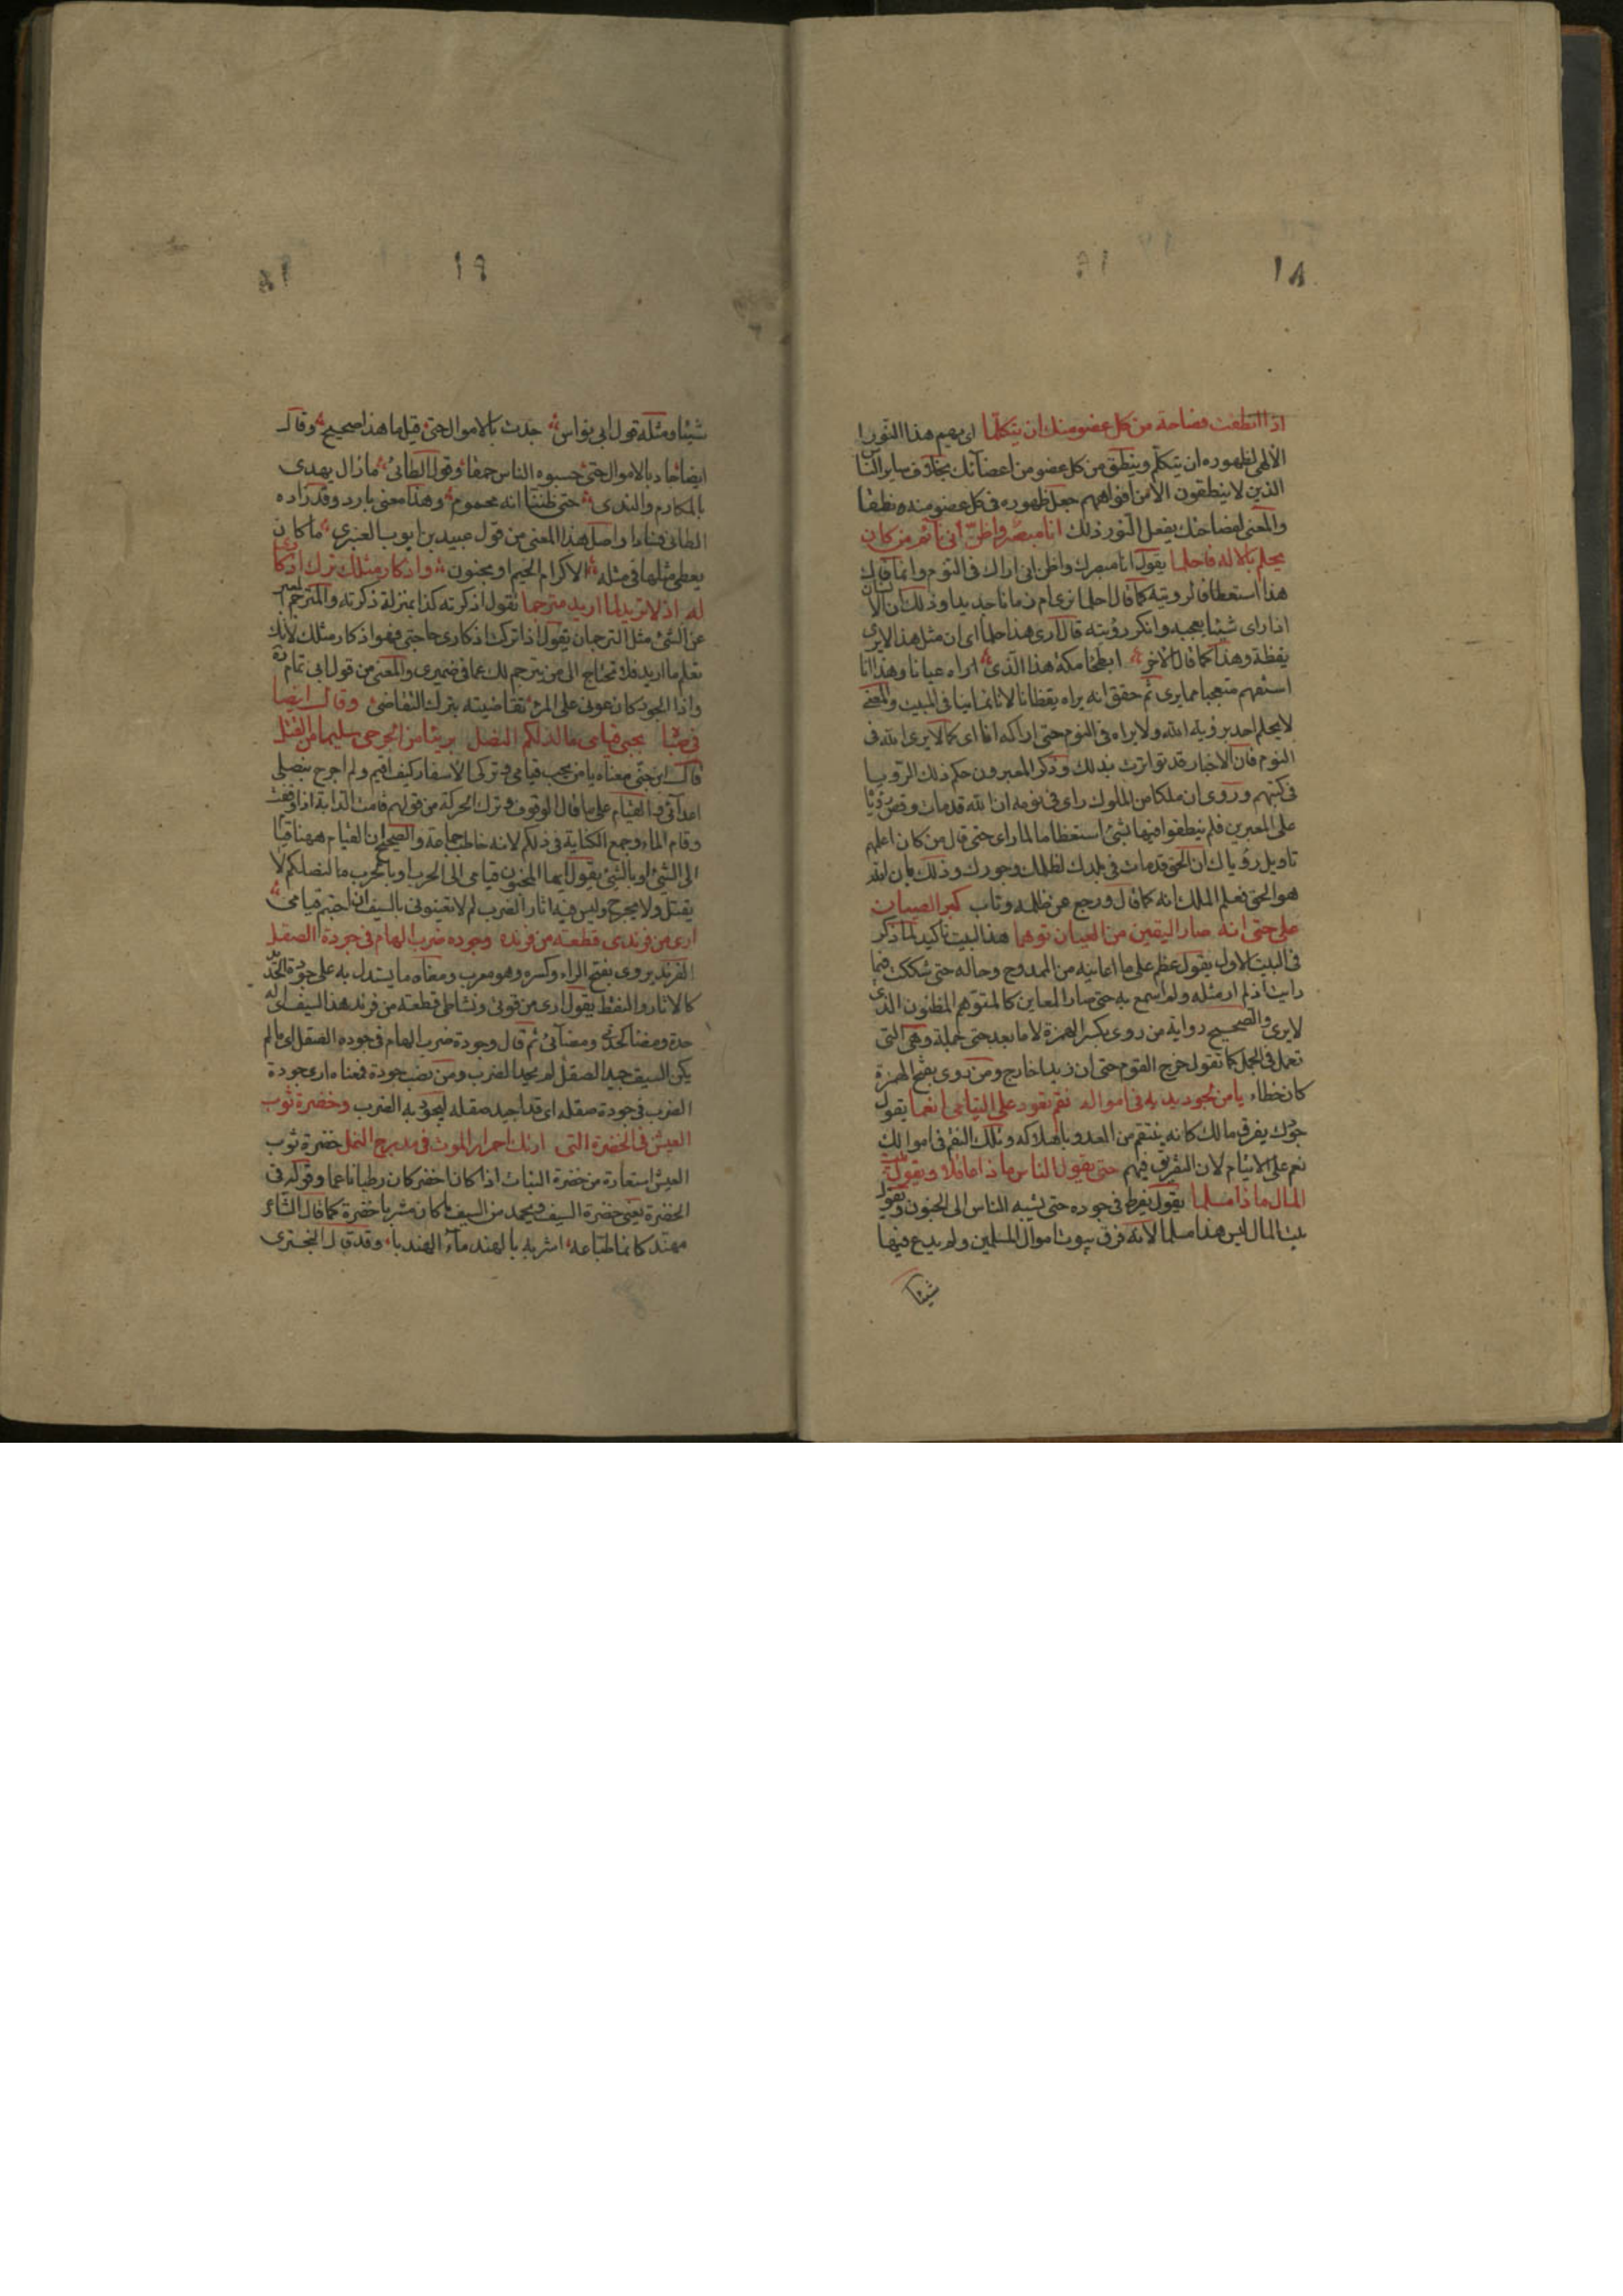 ١٨
اذا انطقت فصاحة من كل عضو منك ان يتكلما اى يهم هذا النور
الالهى لظهوره ان يتكلم وينطق من كل عضو من اعضائك بخلاف ساير النا
الذين لا ينطقون الا من افواههم جعل ظهوره فى كل عضو منه نطقا
والمعنى لفصاحتك يفعل النور ذلك انا مبصر واظن انى نائم من كان
يحلم بالاله فاحلما يقول انا مبصرك واظن انى اراك فى النوم وانما قال
هذا استعظاما لرويته كما قال احلما نرى ام زمانا جديدا وذلك ان الانسان
اذا راى شيئا يعجبه وانكر رؤيته قال ارى هذا حلما اى ان مثل هذا لا يرى
يقظة وهذا كما قال الاخر ابطحا مكة هذا الذى اراه عيانا وهذا انا
استفهم متعجبا مما يرى ثم حقق انه يراه يقظانا لا نائما ثانيا فى البيت والمعنى
لا يحلم احد برؤية الله ولا يراه فى النوم حتى اراكه انا اى كما لا يرى الله فى
النوم فان الاخبار قد تواترت بذلك وذكر المعبرون حكم ذلك الرويا
فى كتبهم وروى ان ملكا من الملوك راى فى نومه ان الله قد مات وقص رؤيا
على المعبرين فلم ينطقوا فيها بشئ استعظاما لما راى حتى قال من كان اعلمهم
تاويل رؤياك ان الحق قد مات فى بلدك لظلمك وجورك وذلك بان الله
هو الحق فعلم الملك انه كما قال ورجع عن ظلمه وتاب كبر العيان
على حتى انه صار اليقين من العيان توهما هذا البيت تاكيد لما ذكر
فى البيت الاول يقول عظم على ما اعاينه من الممدوح وحاله حتى شككت فيما
رايت اذ لم ار مثله ولم اسمع به حتى صار المعاين كالمتوهم المظنون الذى
لا يرى والصحيح رواية من روى بكسر الهمزة لا ما بعد حتى جملة وهى التى
تعمل فى الجمل كما تقول خرج القوم حتى ان زيدا خارج ومن روى بفتح الهمزة
كان خطاء يا من لجود يديه فى امواله نقم تعود على اليتامى انعما يقول
جودك يفرق مالك كانه ينتقم من العدو باهلاكه وتلك النقم فى اموالك
نعم على الايتام لان التفريق فيهم حتى يقول الناس ماذا عاقلا ويقول بيت
المال ماذا مسلما يقول يفرط فى جوده حتى ينسبه الناس الى الجنون ويقول
بيت المال ليس هذا مسلما لانه فرق بيوت اموال المسلمين ولم يدع فيها
شيئا
١٩
شيئا ومثله قول ابى نواس جدت بالاموال حتى قيل ما هذا صحيح وقال
ايضا جاد بالاموال حتى حسبوه الناس حمقا وقول الطائى ما زال يهدى
بالمكارم والندى حتى ظننا انه محموم وهذا معنى بارد وقد زاده
الطائى فسادا واصل هذا المعنى من قول عبيد بن ايوب العنبرى ما كان
يعطى مثلها فى مثله الا كرام الخيم او مجنون واذكار مثلك ترك اذكارى
له اذ لا تريد لما اريد مترجما تقول اذكرته كذا بمنزلة ذكرته والمترجم المعبر
عن الشئ مثل الترجمان يقول اذا تركت اذكارى حاجتى فهو اذكار مثلك لانك
تعلم ما اريد فلا تحتاج الى من يترجم لك عما فى ضميرى والمعنى من قول ابى تمام
واذا الجود كان عونى على المرء تقاضيته بترك التقاضى وقال ايضا
فى صباه محبى قيامى ما لذلكم النصل بريئا من الجرحى سليما من القتل
قال ابن جنى معناه يا من يحب قيامى وتركى الاسفار كيف اقيم ولم اجرح بنصلى
اعدائى والقيام على ما قال الوقوف وترك الحركة من قولهم قامت الدابة اذا وقفت
وقام الماء وجمع الكناية فى ذلكم لانه خاطب جماعة والصحيح ان القيام ههنا قيام
الى الشئ او بالشئ يقول ايها المحبون قيامى الى الحرب او بالحرب ما لنصلكم لا
يقتل ولا يجرح وليس فيه اثار الضرب لم لا تعينونى بالسيف ان احببتم قيامى
ارى من فرندى قطعة من فرنده وجودة ضرب الهام فى جودة الصقل
الفرند يروى بفتح الراء وكسره وهو معرب ومعناه ما يستدل به على جودة الحديد
كالاثار والنقط يقول ارى من قوتى ونشاطى قطعة من فرند هذا السيف اى له
حدة ومضاء كحدتى ومضائى ثم قال وجودة ضرب الهام فى جودة الصقل اى ما لم
يكن السيف جيد الصقل لم يجد الضرب ومن نصب جودة فمعناه ارى جودة
الضرب فى جودة صقله اى قد اجيد صقله ليجود به الضرب وخضرة ثوب
العيش فى الخضرة التى ارتك احمرار الموت فى مدرج النمل خضرة ثوب
العيش استعارة من خضرة النبات اذا كان اخضر كان رطبا ناعما وقوله فى
الخضرة يعنى خضرة السيف ويحمد من السيف ما كان مشربا خضرة كما قال الشاعر
مهند كانما طباعه اشربه بالهند ماء الهندبا وقد قال البحترى